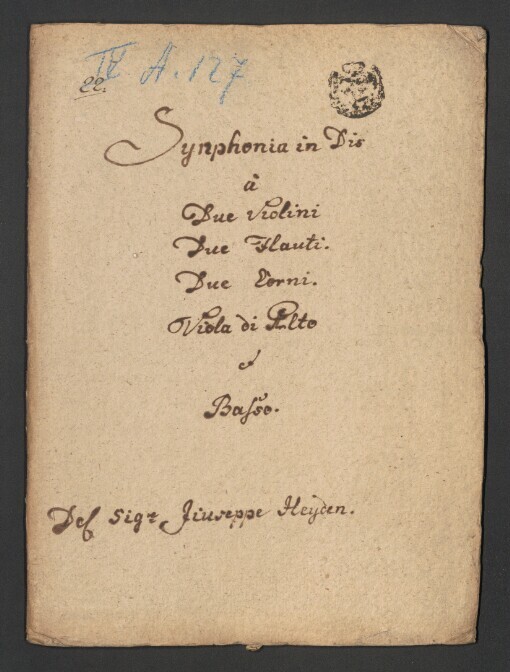 IV A. 127
22.
Synphonia in Dis
à
Due Violini
Due Flauti.
Due Corni.
Viola di Alto
e
Baſso.
Del Sigre Jiuseppe Heyden.